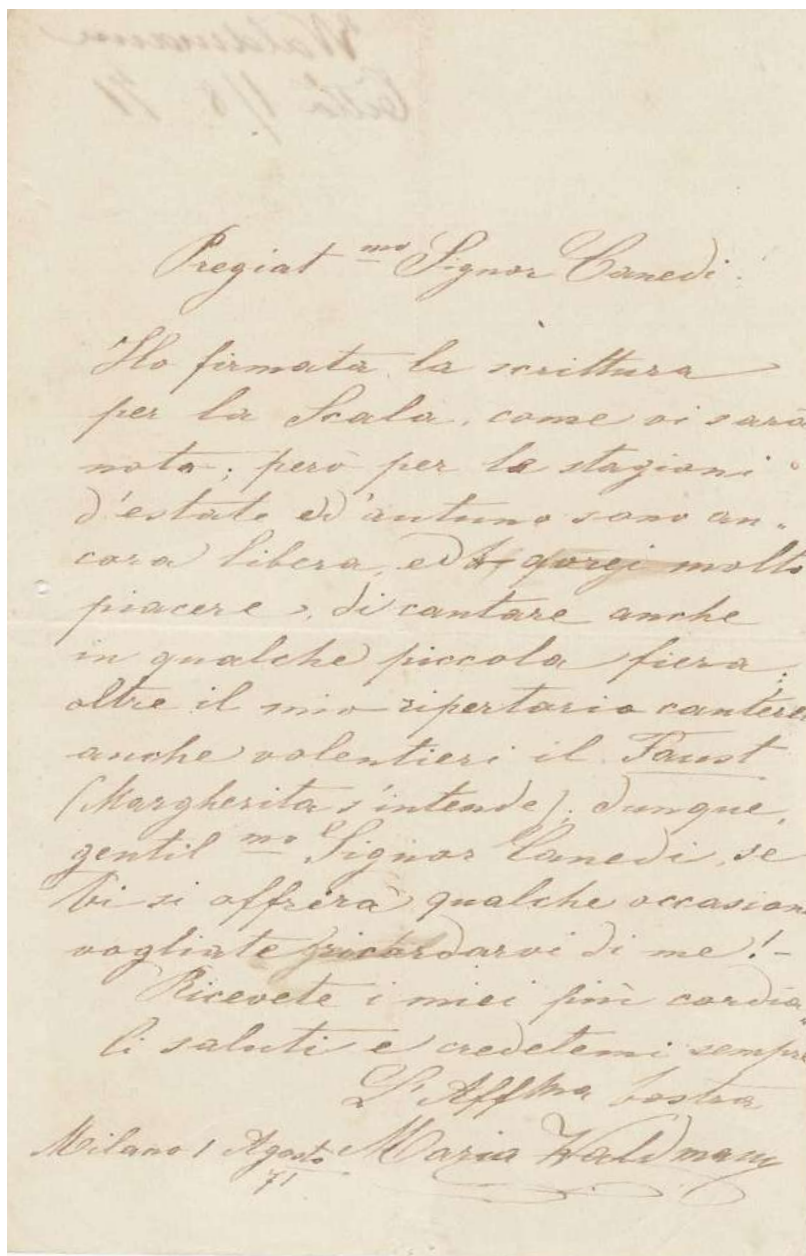 Waldmann
Città 1/8 71
Pregiat mo Signor Canedi.
Ho firmata la scrittura
per la Scala, come vi sarà
nota; però per le stagioni
d'estate ed'autuno sono an„
cora libera, ed molto
piacere, di cantare anche
in qualche piccola fiera;
oltre il mio ripertorio canterei
anche volentieri il Faust
(Margherita s'intende); dunque,
gentil mo Signor Canedi, se
Vi si offrirà qualche occasion
vogliate ricordarvi di me! –
Ricevete i miei più cordia„
li saluti e credetemi sempre
L' Affma Vostra
Milano 1 Agosto Maria Waldmann
71